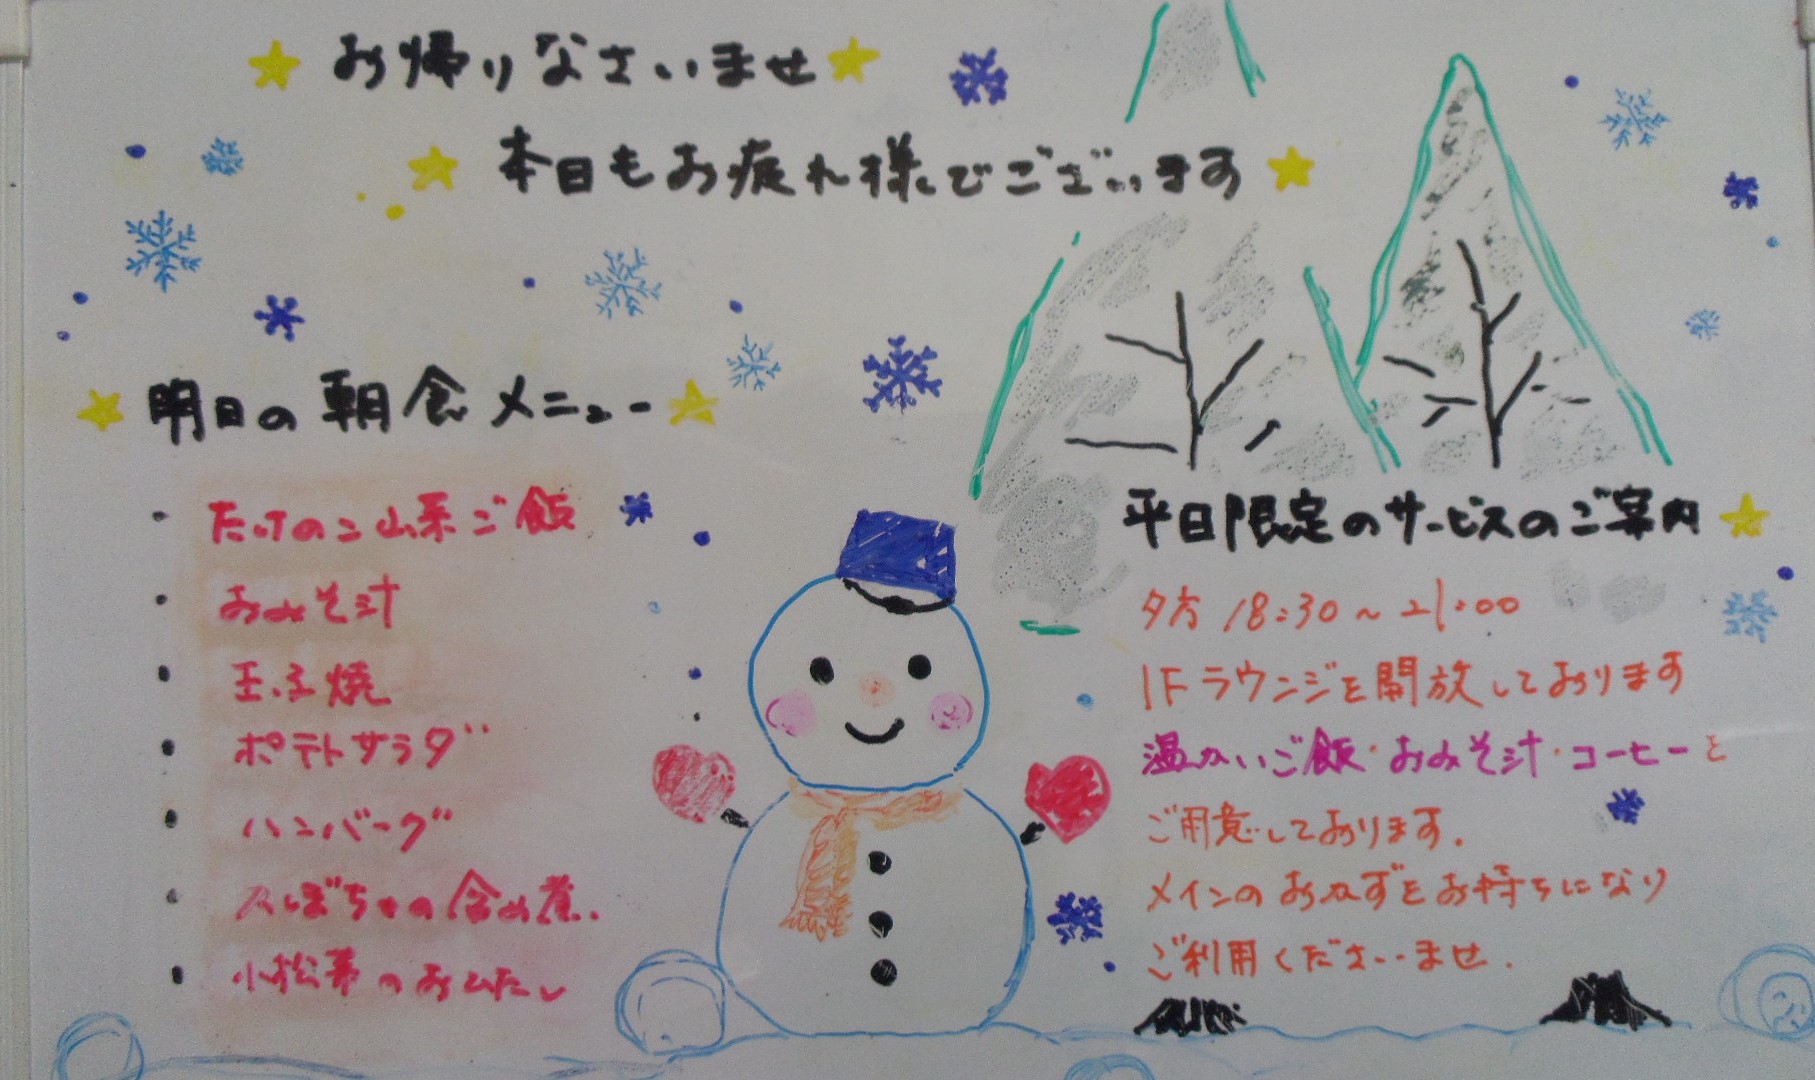 お帰りなさいませ
本日もお疲れ様でございます
明日の朝食メニュー
・たけのこ山菜ご飯
・おみそ汁
・玉子焼
・ポテトサラダ
・ハンバーグ
・かぼちゃの含め煮
・小松菜のおひたし
平日限定のサービスのご案内
夕方 18:30～21:00
1Fラウンジを開放しております
温かいご飯・おみそ汁・コーヒーを
ご用意しております。
メインのおかずをお持ちになり
ご利用くださいませ。